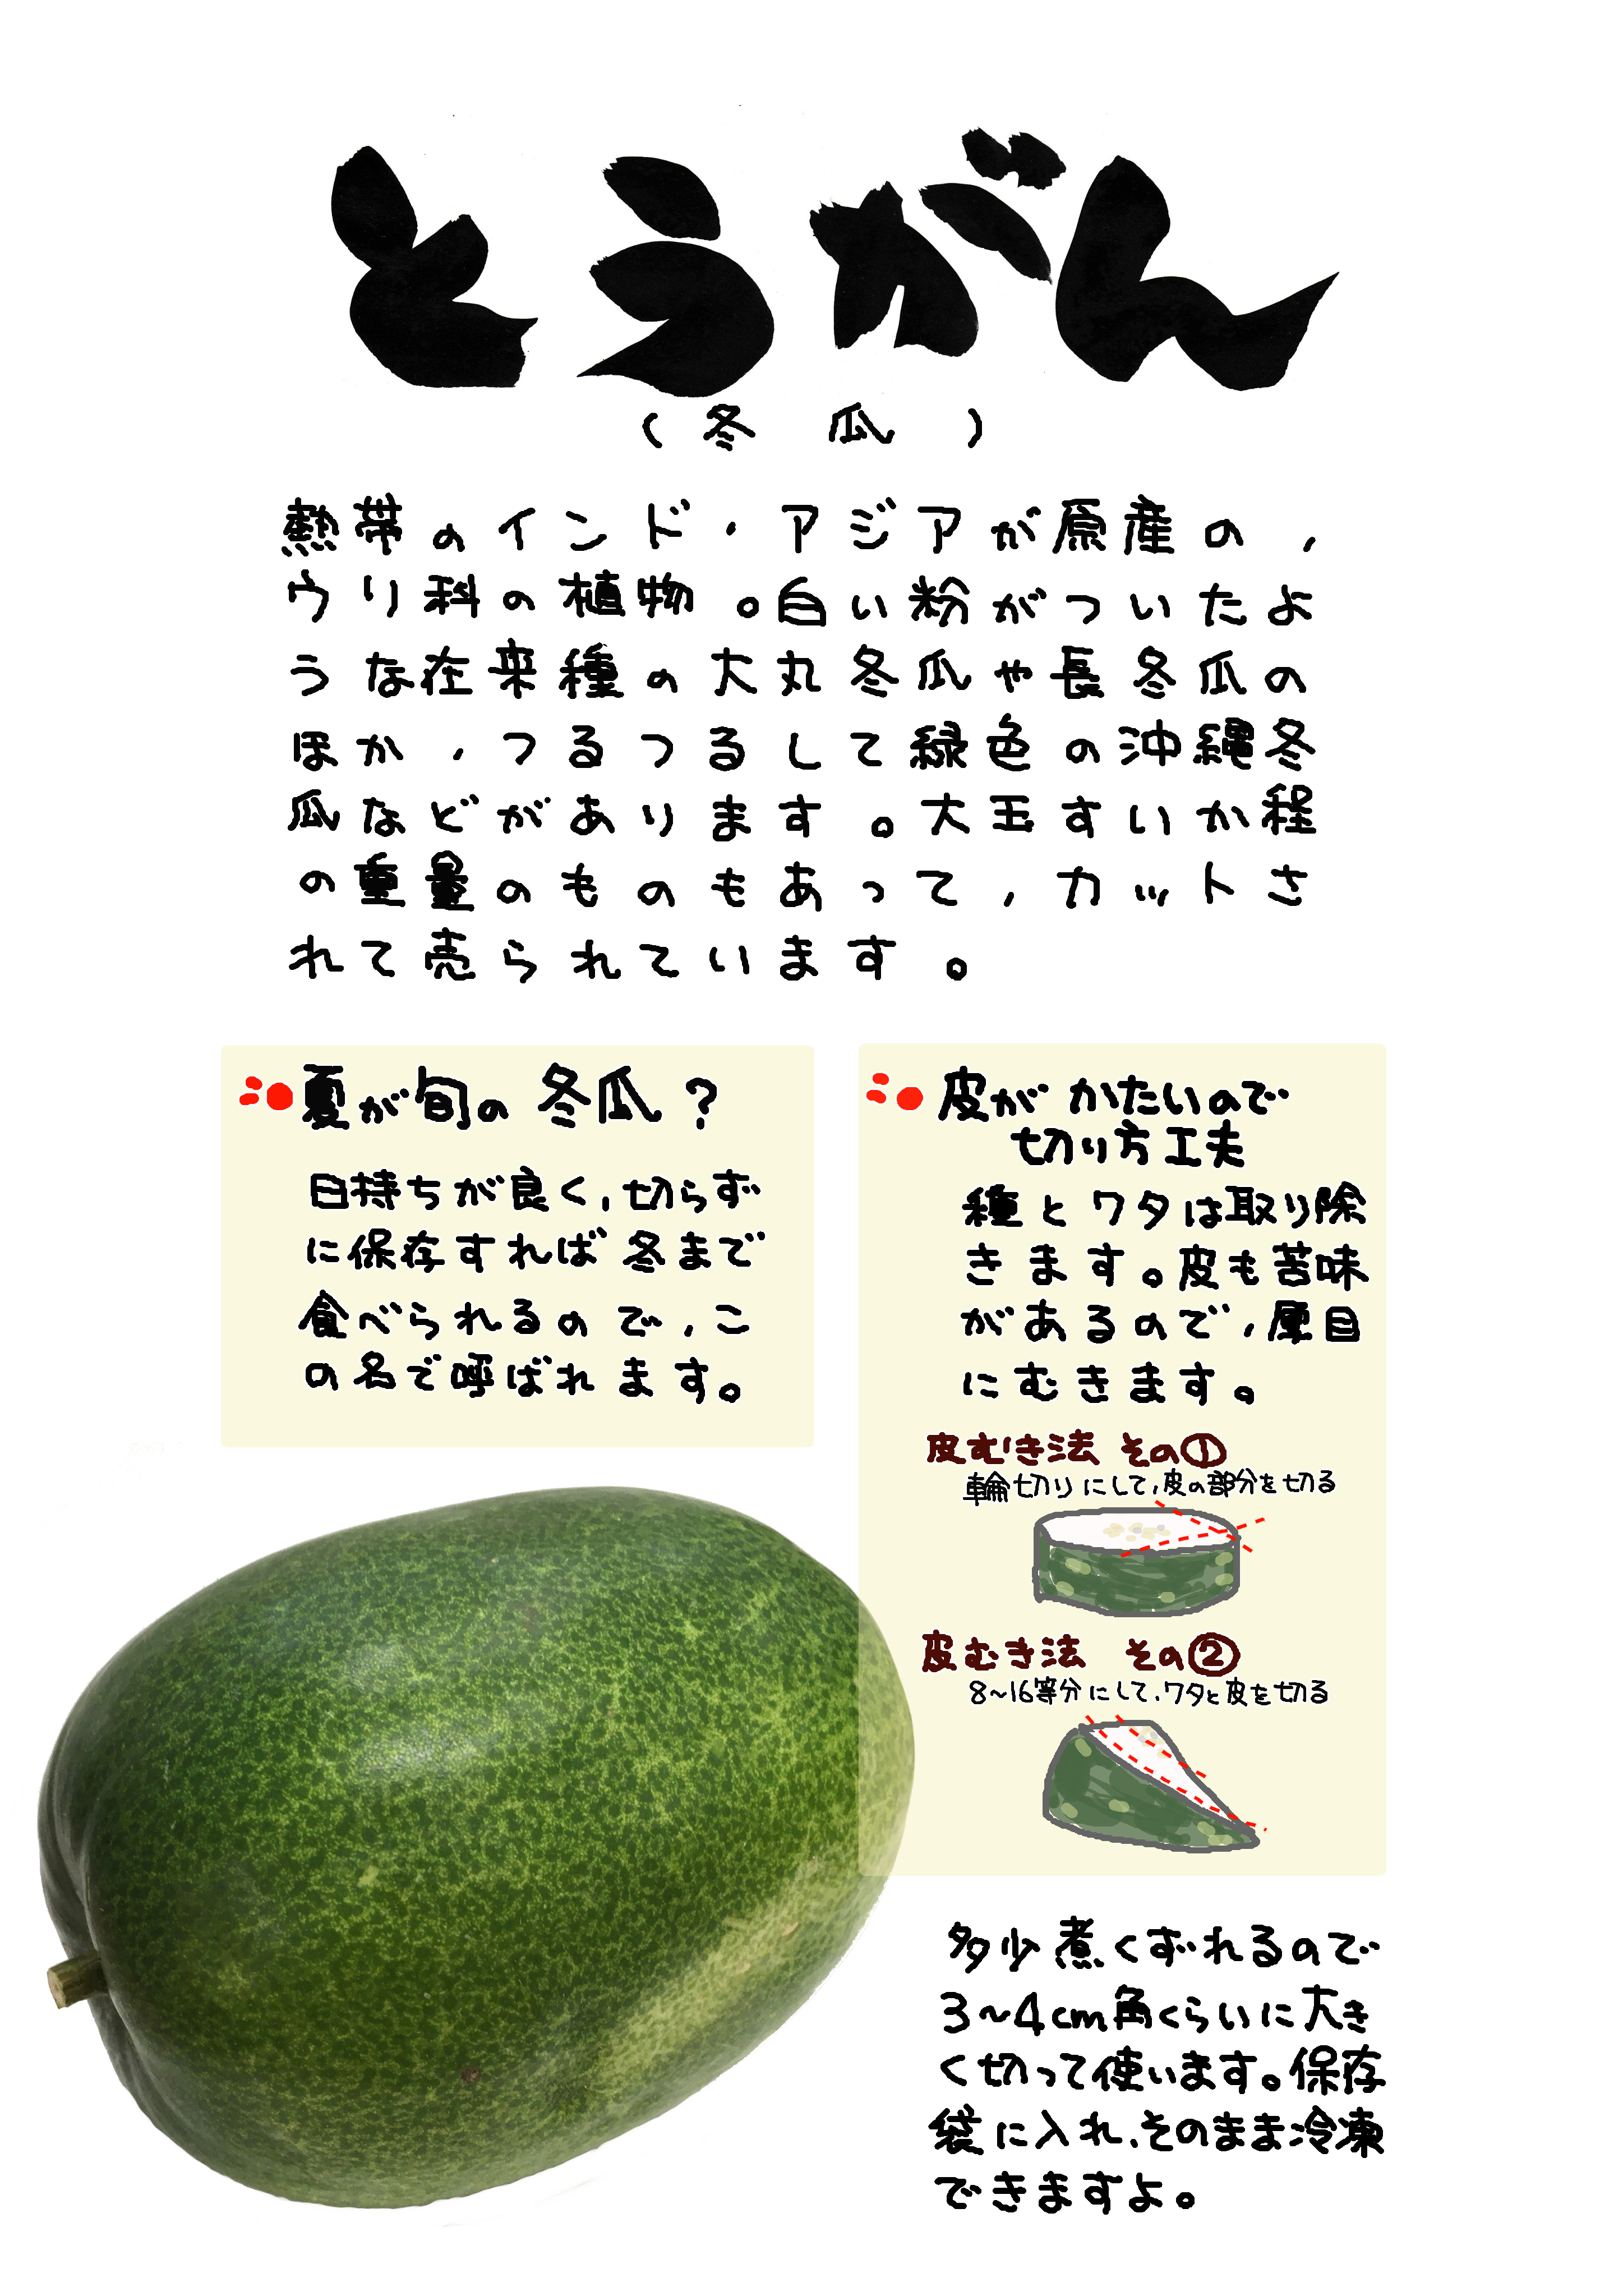 とうがん
(冬瓜)
熱帯のインド・アジアが原産の、
ウリ科の植物。白い粉がついたよ
うな在来種の大丸冬瓜や長冬瓜の
ほか、つるつるして緑色の沖縄冬
瓜などがあります。大玉すいか程
の重量のものもあって、カットさ
れて売られています。
夏が旬の冬瓜?
日持ちが良く、切らず
に保存すれば冬まで
食べられるので、こ
の名で呼ばれます。
皮がかたいので
切り方工夫
種とワタは取り除
きます。皮も苦味
があるので、厚目
にむきます。
皮むき法 その①
輪切りにして、皮の部分を切る
皮むき法 その②
8~16等分にして、ワタと皮を切る
多少煮くずれるので
3~4cm角くらいに大き
く切って使います。保存
袋に入れ、そのまま冷凍
できますよ。